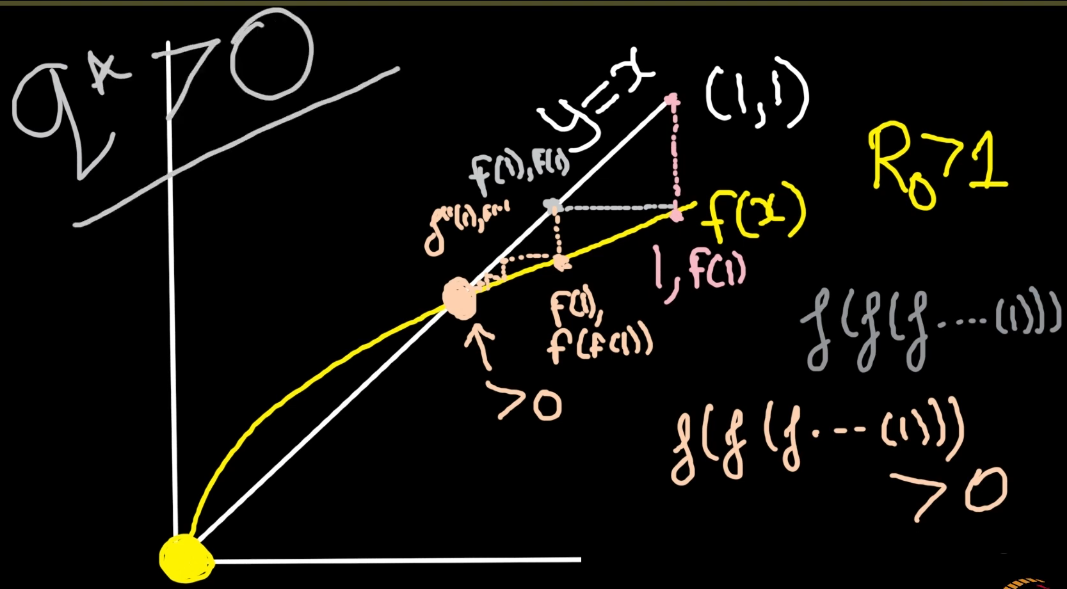 q* > 0
y=x
(1,1)
R₀>1
f(1), f(1)
f(x)
1, f(1)
f(1),
f(f(1))
>0
f(f(f....(1)))
f(f(f...(1)))
>0